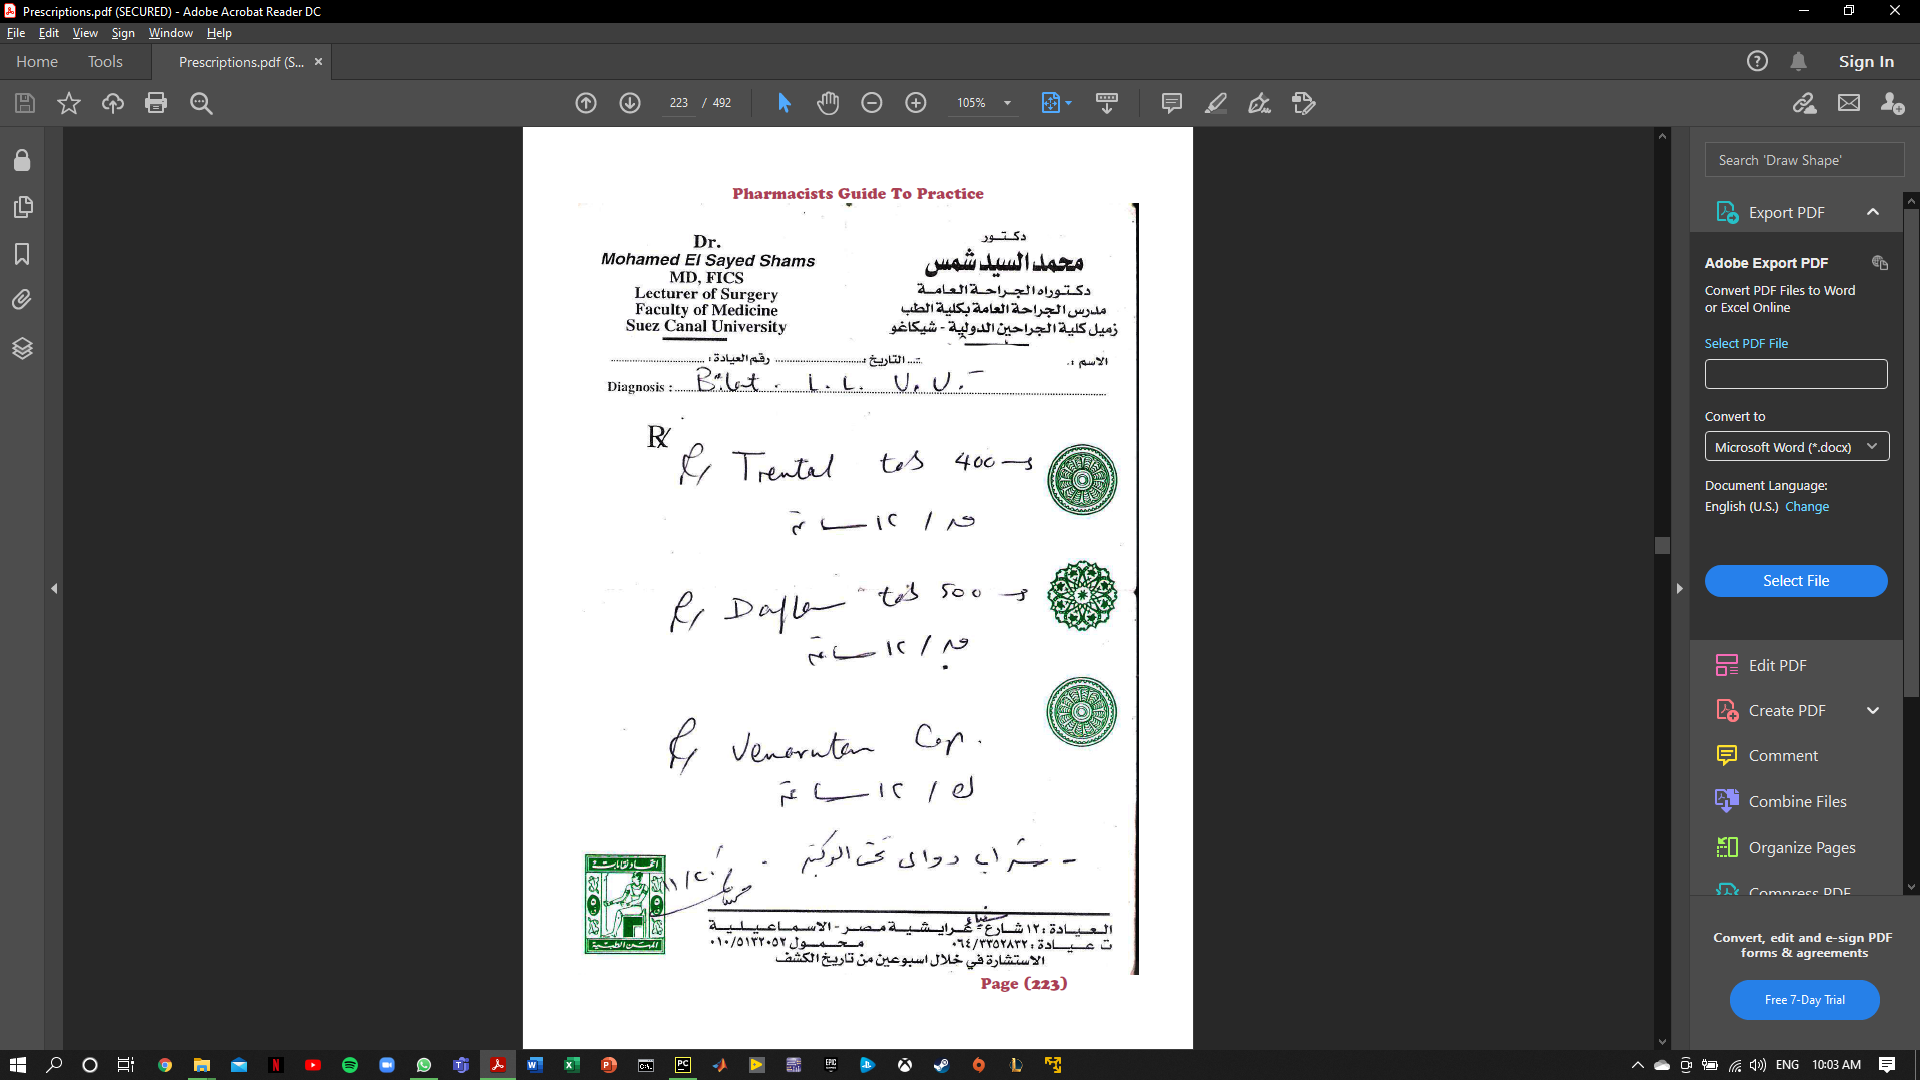 Prescriptions.pdf (SECURED) - Adobe Acrobat Reader DC
File Edit View Sign Window Help
Home Tools Prescriptions.pdf (S... Sign In
223 / 492 105%
Pharmacists Guide To Practice
Dr.
Mohamed El Sayed Shams
MD, FICS
Lecturer of Surgery
Faculty of Medicine
Suez Canal University
دكتور
محمد السيد شمس
دكتوراه الجراحة العامة
مدرس الجراحة العامة بكلية الطب
زميل كلية الجراحين الدولية - شيكاغو
الاسم : التاريخ : رقم العيادة :
Diagnosis : Bilat. L. L. V. V.
Rx
R/ Trental tab 400
١٢ ساعة
R/ Daflon tab 500
١٢ ساعة
R/ Venoruton Cap.
ك / ١٢ ساعة
- شراب دوالى تحت الركبة .
اتحاد نقابات
المهن الطبية
العيادة : ١٢ شارع عرايشية مصر - الاسماعيلية
ت عيادة : ٠٦٤/٣٣٥٢٨٣٢ محمول ٠١٠/٥١٣٢٠٥٢
الاستشارة في خلال اسبوعين من تاريخ الكشف
Page (223)
Search 'Draw Shape'
Export PDF
Adobe Export PDF
Convert PDF Files to Word
or Excel Online
Select PDF File
Convert to
Microsoft Word (*.docx)
Document Language:
English (U.S.) Change
Select File
Edit PDF
Create PDF
Comment
Combine Files
Organize Pages
Compress PDF
Convert, edit and e-sign PDF
forms & agreements
Free 7-Day Trial
ENG 10:03 AM